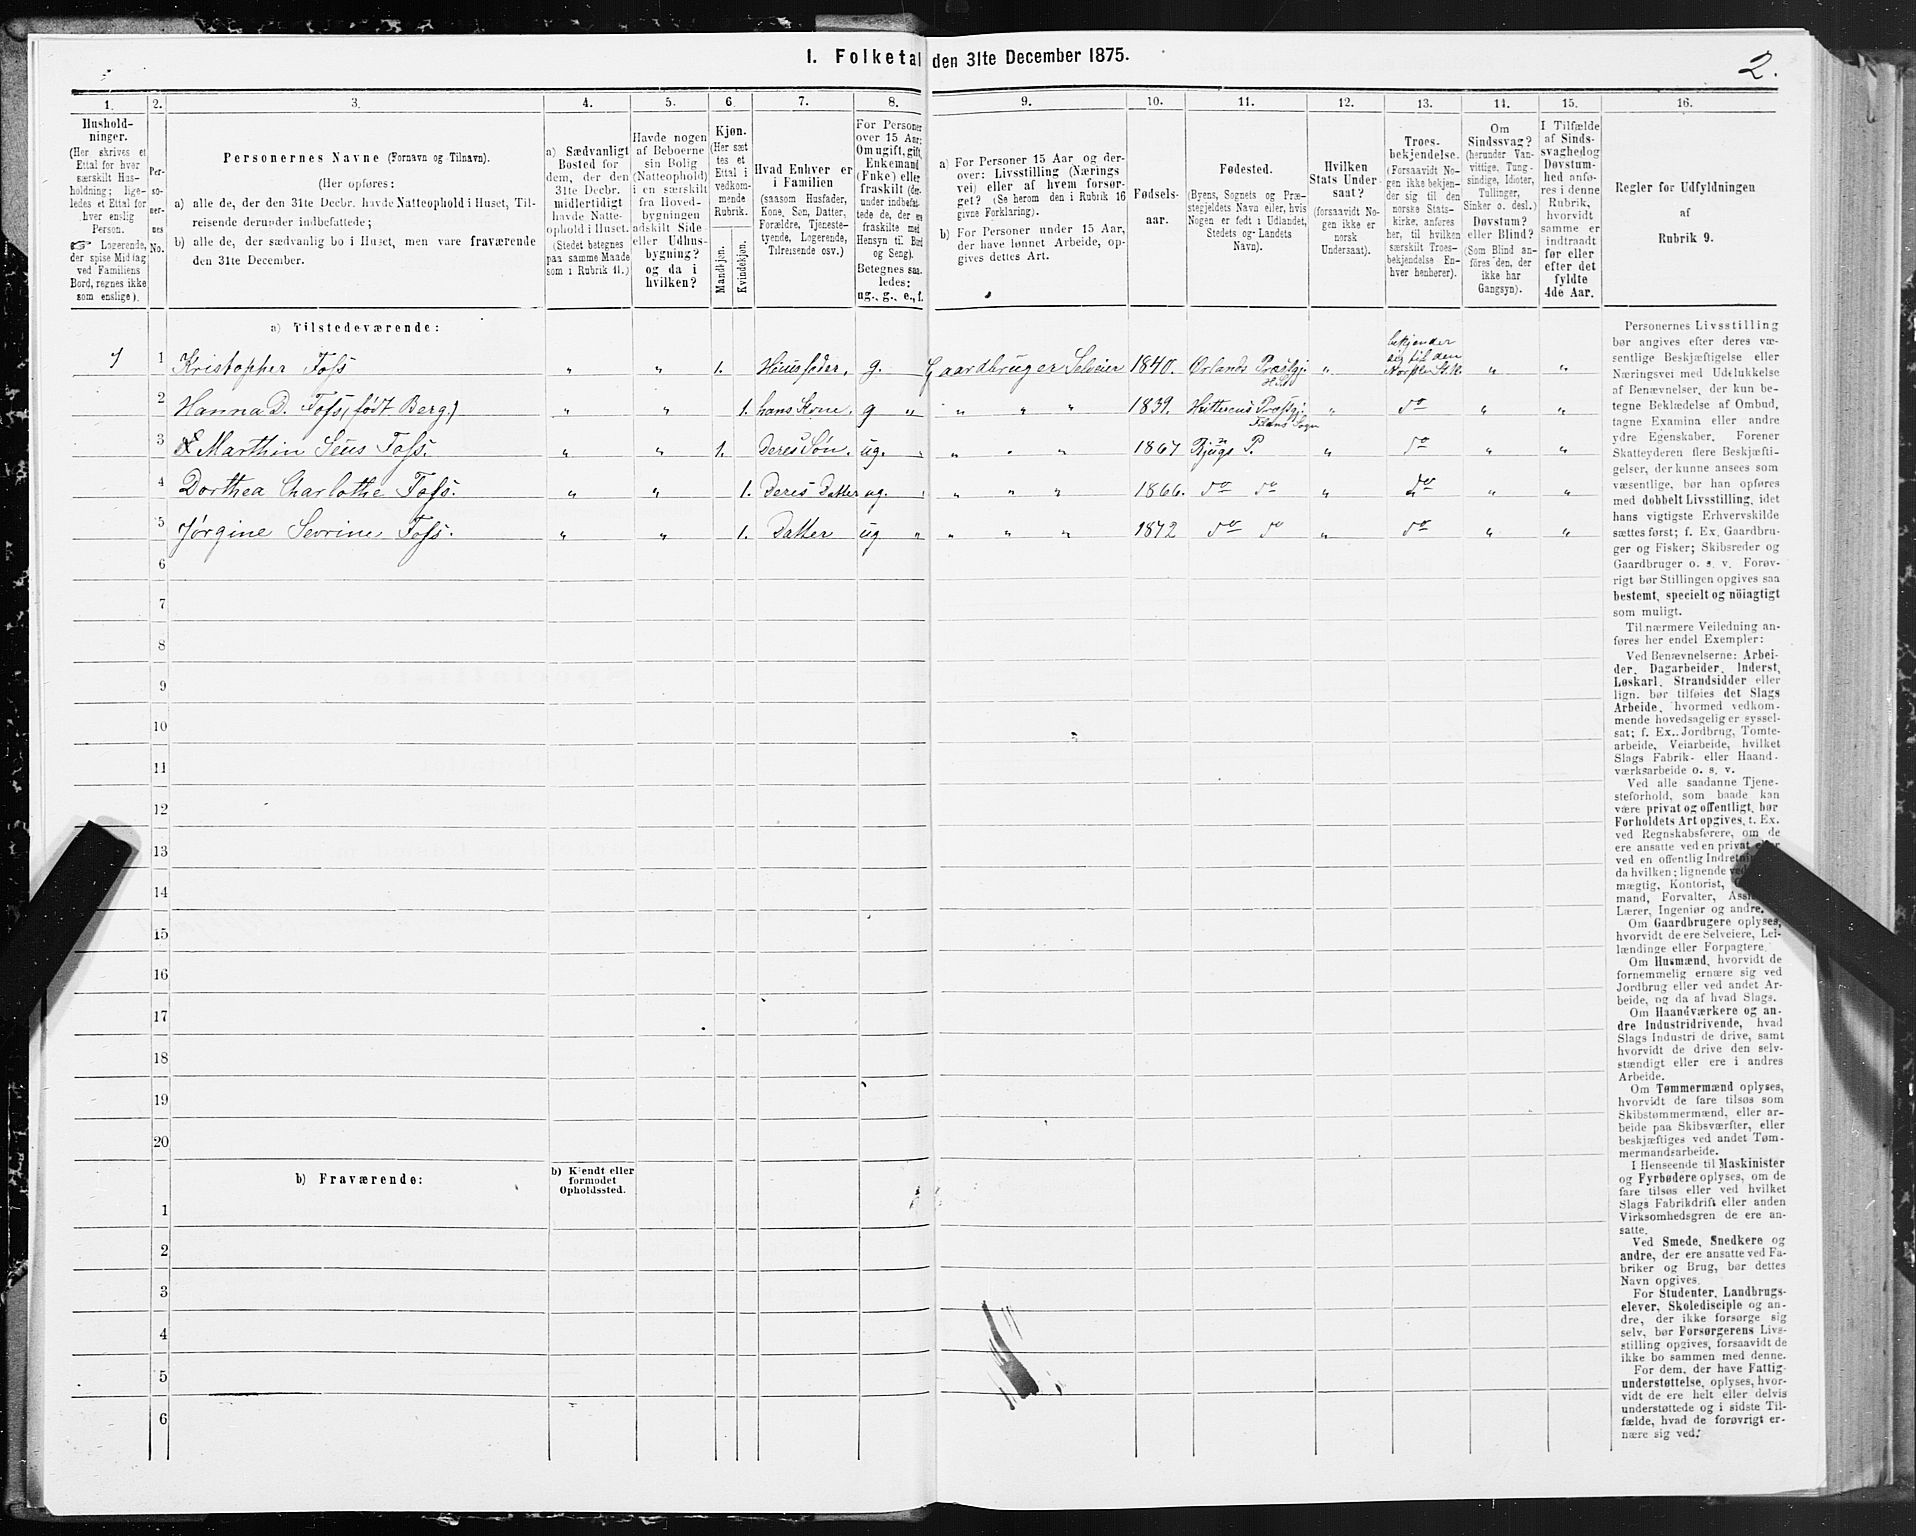 I. Folketal den 31te December 1875.
2.
1. 2. 3. 4. 5. 6. 7. 8. 9. 10. 11. 12. 13. 14. 15. 16.
Hushold-
ninger.
(Her skrives et
Ettal for hver
særskilt Hus-
holdning; lige-
ledes et Ettal for
hver enslig
Person.
☞ Logerende,
der spise Middag
ved Familiens
Bord, regnes ikke
som enslige).
Per-
so-
ner-
nes
No.
Personernes Navne (Fornavn og Tilnavn).
(Her opføres:
a) alle de, der den 31te Decbr. havde Natteophold i Huset, Til-
reisende derunder indbefattede;
b) alle de, der sædvanlig bo i Huset, men vare fraværende
den 31te December.
a) Sædvanligt
Bosted for
dem, der den
31te Decbr.
midlertidigt
havde Natte-
ophold i Huset.
(Stedet betegnes
paa samme Maade
som i Rubrik 11.)
Havde nogen
af Beboerne
sin Bolig
(Natteophold)
i en særskilt
fra Hoved-
bygningen
adskilt Side-
eller Udhus-
bygning?
og da i
hvilken?
Kjøn.
(Her sæt-
tes et
Ettal i
vedkom-
mende
Rubrik.
Mandkjøn.
Kvindekjøn.
Hvad Enhver er
i Familien
(saasom Husfader,
Kone, Søn, Datter,
Forældre, Tjeneste-
tyende, Logerende,
Tilreisende osv.)
For Personer
over 15 Aar:
Om ugift, gift,
Enkemand
(Enke) eller
fraskilt (der-
under indbefat-
tede de, der ere
fraskilte med
Hensyn til Bord
og Seng).
Betegnes saa-
ledes:
ug., g., e., f.
a) For Personer 15 Aar og der-
over: Livsstilling (Nærings-
vei) eller af hvem forsør-
get? (Se herom den i Rubrik 16
givne Forklaring).
b) For Personer under 15 Aar,
der have lønnet Arbeide, op-
gives dettes Art.
Fødsels-
aar.
Fødested.
(Byens, Sognets og Præ-
stegjeldets Navn eller, hvis
Nogen er født i Udlandet,
Stedets og Landets
Navn).
Hvilken
Stats Under-
saat?
(forsaavidt No-
gen ikke er
norsk
Undersaat).
Troes-
bekjendelse.
(Forsaavidt No-
gen ikke bekjen-
der sig til den
norske Stats-
kirke, anføres
her, til hvilken
særskilt Troes-
bekjendelse En-
hver henhører).
Om
Sindssvag?
(herunder Van-
vittige, Tung-
sindige, Idioter,
Tullinger,
Sinker o. desl.)
Døvstum?
eller Blind?
(Som Blind an-
føres den, der
ikke har
Gangsyn).
I Tilfælde
af Sinds-
svaghed og
Døvstum-
hed anfø-
res i denne
Rubrik,
hvorvidt
samme er
indtraadt
før eller
efter det
fyldte
4de Aar.
Regler for Udfyldningen
af
Rubrik 9.
a) Tilstedeværende:
1 1 Kristopher Fofs " " 1. Huusfader, g. Gaardbruger Selveier 1840. Ørlands Præstgj. " bekjender sig til den Norske St.K. " "
2 Hanna D. Fofs (født Berg.) " " 1. hans Kone. g " " " " 1839. Hitterens Præstgj. " do " "
3 Marthin Seus Fofs. " " 1. Deres Søn. ug. " " " " 1867 Bjugn P. " do " "
4 Dorthea Charlothe Fofs. " " 1. Deres Datter ug. " " " " 1866. do do " do " "
5 Jørgine Sevrine Fofs. " " 1. Datter ug " " " " 1872 do do " do " "
6
7
8
9
10
11
12
13
14
15
16
17
18
19
20
b) Fraværende:
b) Kjendt eller
formodet
Opholdssted.
1
2
3
4
5
6
Personernes Livsstilling
bør angives efter deres væ-
sentlige Beskjæftigelse eller
Næringsvei med Udelukkelse
af Benævnelser, der kun be-
tegne Beklædelse af Ombud,
tagne Examina eller andre
ydre Egenskaber. Forener
Skatteyderen flere Beskjæfti-
gelser, der kunne ansees som
væsentlige, bør han opføres
med dobbelt Livsstilling, idet
hans vigtigste Erhvervskilde
sættes først; f. Ex. Gaardbru-
ger og Fisker; Skibsreder og
Gaardbruger o. s. v. Forøv-
rigt bør Stillingen opgives saa
bestemt, specielt og nöiagtigt
som muligt.
Til nærmere Veiledning an-
føres her endel Exempler:
Ved Benævnelserne: Arbei-
der, Dagarbeider, Inderst,
Løskarl, Strandsidder eller
lign. bør tilføies det Slags
Arbeide, hvormed vedkom-
mende hovedsagelig er syssel-
sat; f. Ex. Jordbrug, Tomte-
arbeide, Veiarbeide, hvilket
Slags Fabrik- eller Haand-
værksarbeide o. s. v.
Ved alle saadanne Tjene-
steforhold, som baade kan
være privat og offentligt, bør
Forholdets Art opgives, t. Ex.
ved Regnskabsførere, om de
ere ansatte ved en privat eller
ved en offentlig Indretning
da hvilken; lignende ved
mægtig, Kontorist,
mand, Forvalter,
Lærer, Ingeniør og andre.
Om Gaardbrugere oplyses,
hvorvidt de ere Selveiere, Lei-
lændinge eller Forpagtere.
Om Husmænd, hvorvidt de
fornemmelig ernære sig ved
Jordbrug eller ved andet Ar-
beide, og da af hvad Slags.
Om Haandværkere og an-
dre Industridrivende, hvad
Slags Industri de drive, samt
hvorvidt de drive den selv-
stændigt eller ere i andres
Arbeide.
Om Tømmermænd oplyses,
hvorvidt de fare tilsøs som
Skibstømmermænd, eller ar-
beide paa Skibsværfter, eller
beskjæftiges ved andet Tøm-
mermandsarbeide.
I Henseende til Maskinister
og Fyrbødere oplyses, om de
fare tilsøs eller ved hvilket
Slags Fabrikdrift eller anden
Virksomhedsgren de ere an-
satte.
Ved Smede, Snedkere og
andre, der ere ansatte ved Fa-
briker og Brug, bør dettes
Navn opgives.
For Studenter, Landbrugs-
elever, Skoledisciple og an-
dre, der ikke forsørge sig
selv, bør Forsørgerens Livs-
stilling opgives, forsaavidt de
ikke bo sammen med denne.
For dem, der have Fattig-
understøttelse, oplyses, hvor-
vidt de ere helt eller delvis
understøttede og i sidste Til-
fælde, hvad de forøvrigt er-
nære sig ved.